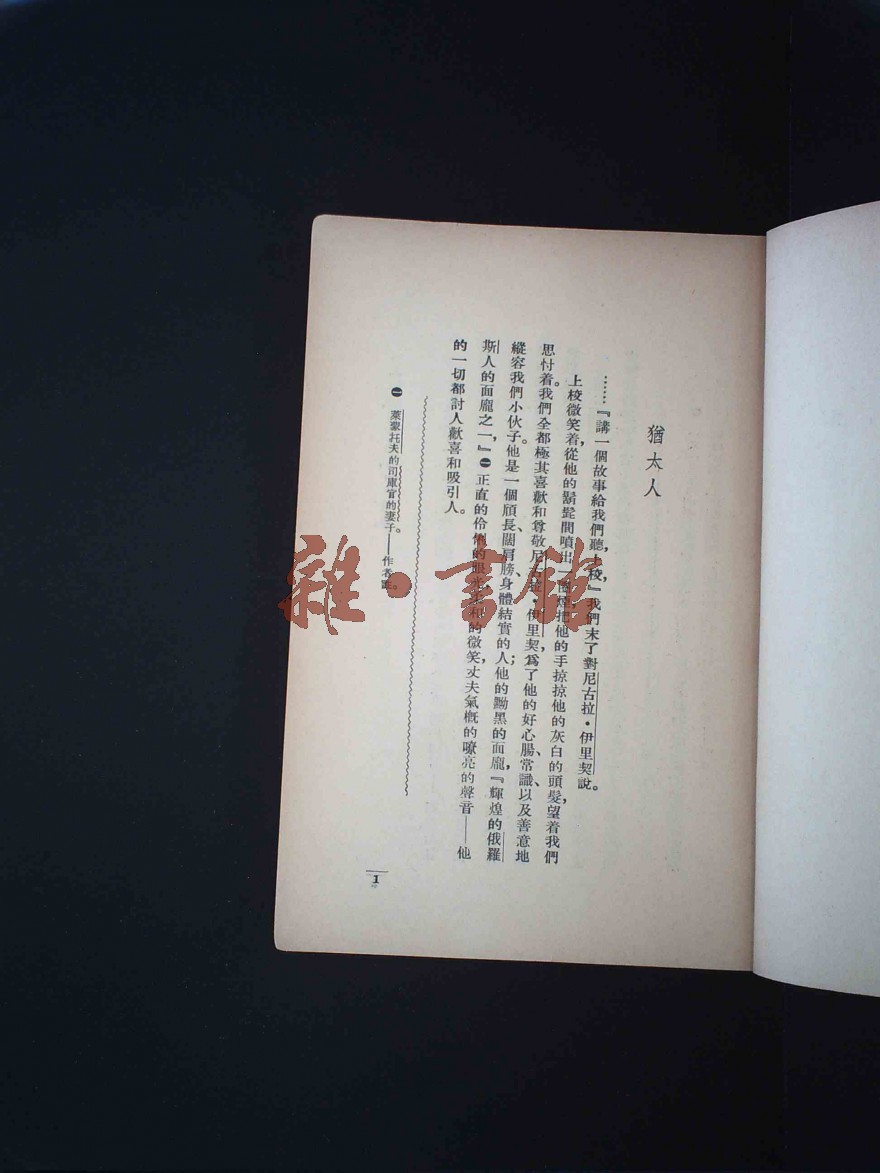 猶太人
……『講一個故事給我們聽，上校，』我們末了對尼古拉·伊里契說。
上校微笑着，從他的鬍髭間噴出一圈煙，把他的手掠掠他的灰白的頭髮，望着我們
思忖着。我們全都極其喜歡和尊敬尼古拉·伊里契，爲了他的好心腸、常識、以及善意地
縱容我們小伙子。他是一個頎長、闊肩膀、身體結實的人；他的黝黑的面龐，『輝煌的俄羅
斯人的面龐之一，』㊀正直的伶俐的眼光，柔和的微笑，丈夫氣概的嘹亮的聲音——他
的一切都討人歡喜和吸引人。
㊀ 萊蒙托夫的司庫官的妻子。——作者註。
1
雜·書館